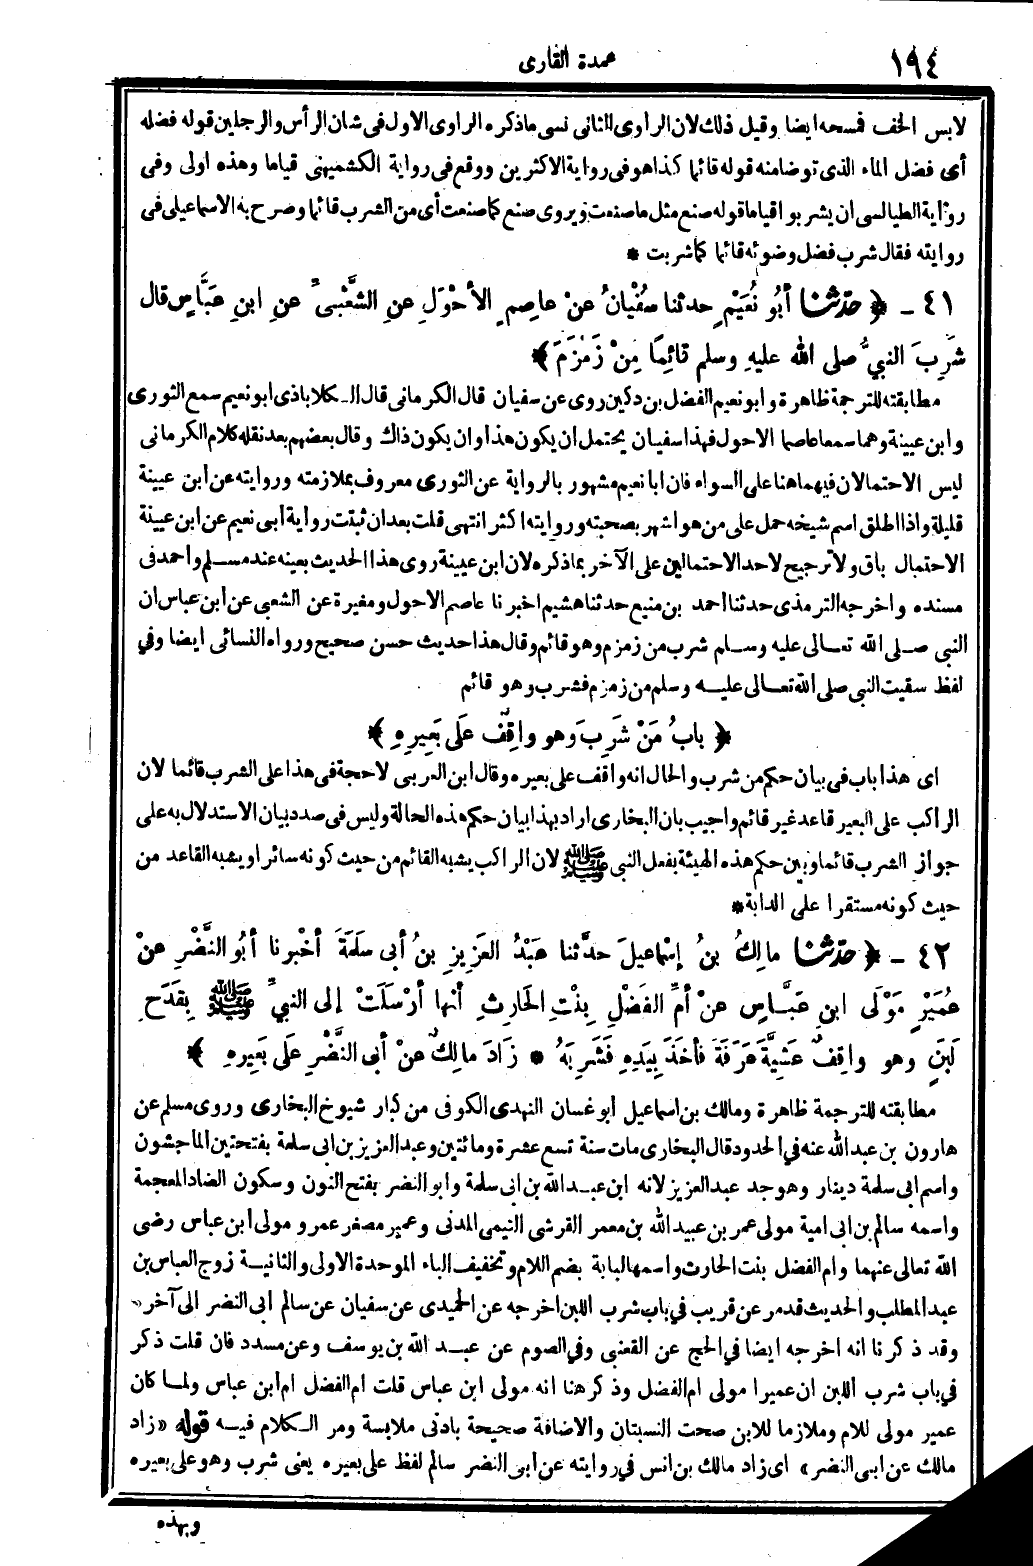 ١٩٤
عمدة القارى
لابس الخف فمسحه ايضا وقيل ذلك لان الراوى الثانى نسى ماذكره الراوى الاول فى شان الرأس والرجلين قوله فضله
أى فضل الماء الذى توضامنه قوله قائما كذاهو فى رواية الاكثرين ووقع فى رواية الكشميهنى قياما وهذه اولى وفى
رواية الطيالسى ان يشربوا قياما قوله صنع مثل ما صنعت ويروى صنع كما صنعت أى من الشرب قائما وصرح به الاسماعيلى فى
روايته فقال شرب فضل وضوئه قائما كما شربت *
٤١ - ﴿ حدّثنا أبُو نُعَيْمٍ حدثنا سُفْيانُ عنْ عاصِمٍ الأحْوَلِ عنِ الشَّعْبىِّ عنِ ابنِ عبَّاسٍ قال
شَرِبَ النبيُّ صلى الله عليهِ وسلم قائِمًا مِنْ زَمْزَمَ ﴾
مطابقته للترجمة ظاهرة وابو نعيم الفضل بن دكين روى عن سفيان قال الكرمانى قال الكلاباذى ابو نعيم سمع الثورى
وابن عيينة وهما سمعا عاصما الاحول فهذا سفيان يحتمل ان يكون هذا وان يكون ذاك وقال بعضهم بعد نقله كلام الكرمانى
ليس الاحتمالان فيهما هنا على السواء فان ابا نعيم مشهور بالرواية عن الثورى معروف بملازمته وروايته عن ابن عيينة
قليلة واذا اطلق اسم شيخه حمل على من هو اشهر بصحبته وروايته اكثر انتهى قلت بعد ان ثبتت رواية أبى نعيم عن ابن عيينة
الاحتمال باق ولا ترجيح لاحد الاحتمالين على الآخر بما ذكره لان ابن عيينة روى هذا الحديث بعينه عند مسلم واحمد فى
مسنده واخرجه الترمذى حدثنا احمد بن منيع حدثنا هشيم اخبرنا عاصم الاحول ومغيرة عن الشعبى عن ابن عباس ان
النبى صلى الله تعالى عليه وسلم شرب من زمزم وهو قائم وقال هذا حديث حسن صحيح ورواه النسائى ايضا وفي
لفظ سقيت النبى صلى الله تعالى عليه وسلم من زمزم فشرب وهو قائم
﴿ بابُ مَنْ شَرِبَ وهو واقِفٌ علَى بَعِيرِهِ ﴾
اى هذا باب فى بيان حكم من شرب والحال انه واقف على بعيره وقال ابن العربى لا حجة فى هذا على الشرب قائما لان
الراكب على البعير قاعد غير قائم واجيب بان البخارى اراد بهذا بيان حكم هذه الحالة وليس فى صدد بيان الاستدلال به على
جواز الشرب قائما وبين حكم هذه الهيئة بفعل النبى ﷺ لان الراكب يشبه القائم من حيث كونه سائرا ويشبه القاعد من
حيث كونه مستقرا على الدابة *
٤٢ - ﴿ حدّثنا مالِكُ بنُ إسْماعيلَ حدَّثنا عَبْدُ العَزِيزِ بنُ أبى سَلَمَةَ أخْبرنا أبُو النَّضْرِ عنْ
عُمَيْرٍ مَوْلَى ابنِ عبَّاسٍ عنْ أمِّ الفَضْلِ بِنْتِ الحَارِثِ أنها أرْسَلَتْ إلى النبيِّ ﷺ بِقَدَحِ
لَبَنٍ وهو واقِفٌ عَشِيَّةَ عَرَفَةَ فأخَذَ بِيَدِهِ فَشَرِبَهُ * زَادَ مالِكٌ عنْ أبى النَّضْرِ علَى بَعِيرِهِ ﴾
مطابقته للترجمة ظاهرة ومالك بن اسماعيل ابو غسان النهدى الكوفى من كبار شيوخ البخارى وروى مسلم عن
هارون بن عبد الله عنه في الحدود قال البخارى مات سنة تسع عشرة ومائتين وعبد العزيز بن ابى سلمة بفتحتين الماجشون
واسم ابى سلمة دينار وهو جد عبد العزيز لانه ابن عبد الله بن ابى سلمة وابو النضر بفتح النون وسكون الضاد المعجمة
واسمه سالم بن ابى امية مولى عمر بن عبيد الله بن معمر القرشى التيمى المدنى وعمير مصغر عمرو مولى ابن عباس رضى
الله تعالى عنهما وام الفضل بنت الحارث واسمها لبابة بضم اللام وتخفيف الباء الموحدة الاولى والثانية زوج العباس بن
عبد المطلب والحديث قد مر عن قريب في باب شرب اللبن اخرجه عن الحميدى عن سفيان عن سالم ابى النضر الى آخره
وقد ذكرنا انه اخرجه ايضا في الحج عن القعنبى وفي الصوم عن عبد الله بن يوسف وعن مسدد فان قلت ذكر
في باب شرب اللبن ان عميرا مولى ام الفضل وذكر هنا انه مولى ابن عباس قلت ام الفضل ام ابن عباس ولما كان
عمير مولى للام وملازما للابن صحت النسبتان والاضافة صحيحة بادنى ملابسة ومر الكلام فيه قوله «زاد
مالك عن ابى النضر» اى زاد مالك بن انس في روايته عن أبى النضر سالم لفظ على بعيره يعنى شرب وهو على بعيره
وبهذه